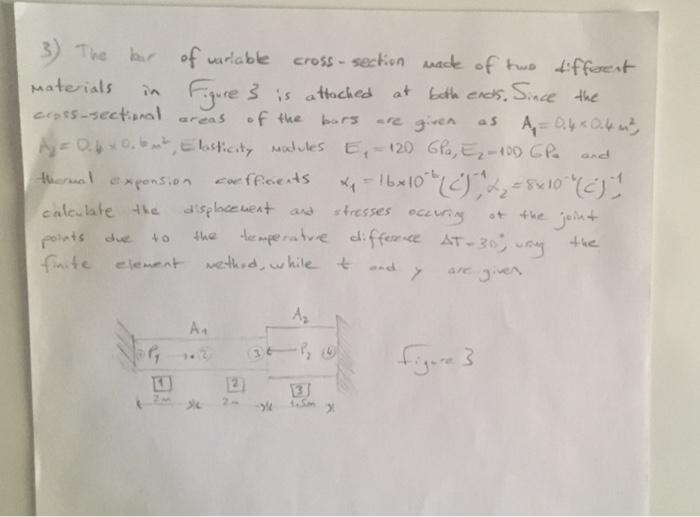 3) The bar of variable cross-section made of two different
materials in Figure 3 is attached at both ends. Since the
cross-sectional areas of the bars are given as A₁ = 0.4 × 0.4 m²,
A₂ = 0.6 × 0.6 m², Elasticity modules E₁ = 120 GPa, E₂ = 100 GPa and
thermal expansion coefficients α₁ = 16×10⁻⁶ (C°)⁻¹, α₂ = 8×10⁻⁶ (C°)⁻¹,
calculate the displacement and stresses occuring at the joint
points due to the temperature difference ΔT = 30°, using the
finite element method, while t and y are given
A₁ A₂
P₁ → 2 3 ← P₂ 4
1 2 3
2m 2m 1.5m
Figure 3